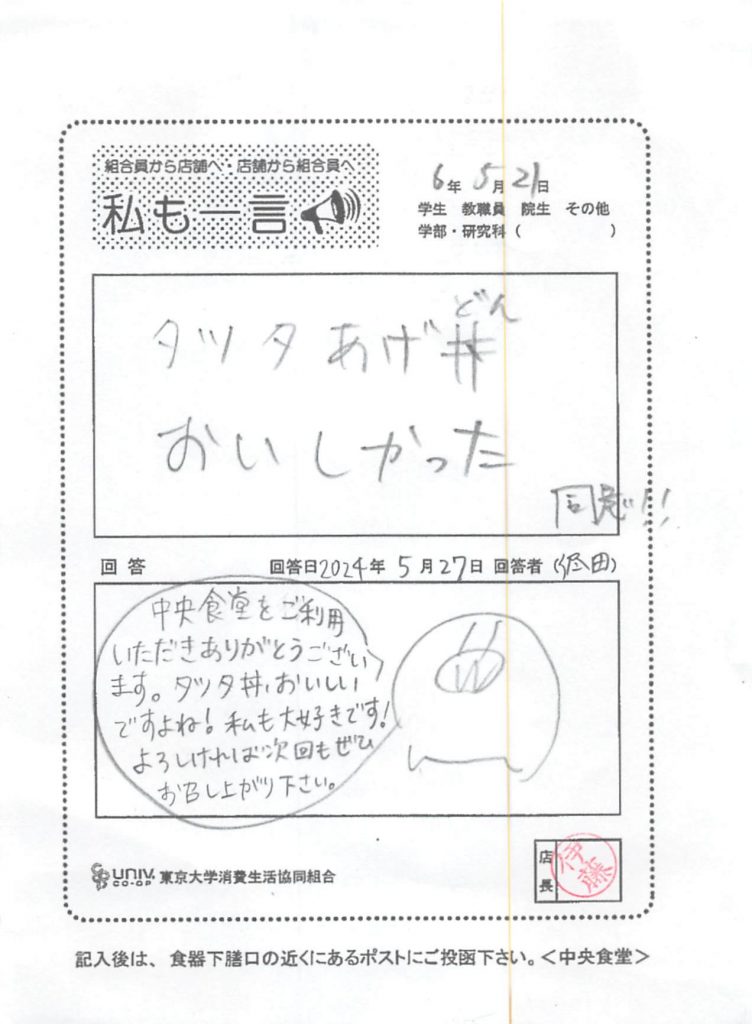 組合員から店舗へ・店舗から組合員へ
私も一言
6年 5月 21日
学生 教職員 院生 その他
学部・研究科 ( )
どん
タツタあげ丼
おいしかった
同意!!
回答 回答日2024年 5月27日 回答者 (沼田)
中央食堂をご利用
いただきありがとうござい
ます。タツタ丼、おいしい
ですよね! 私も大好きです!
よろしければ次回もぜひ
お召し上がり下さい。
UNIV. CO-OP 東京大学消費生活協同組合
店長 伊藤
記入後は、食器下膳口の近くにあるポストにご投函下さい。<中央食堂>